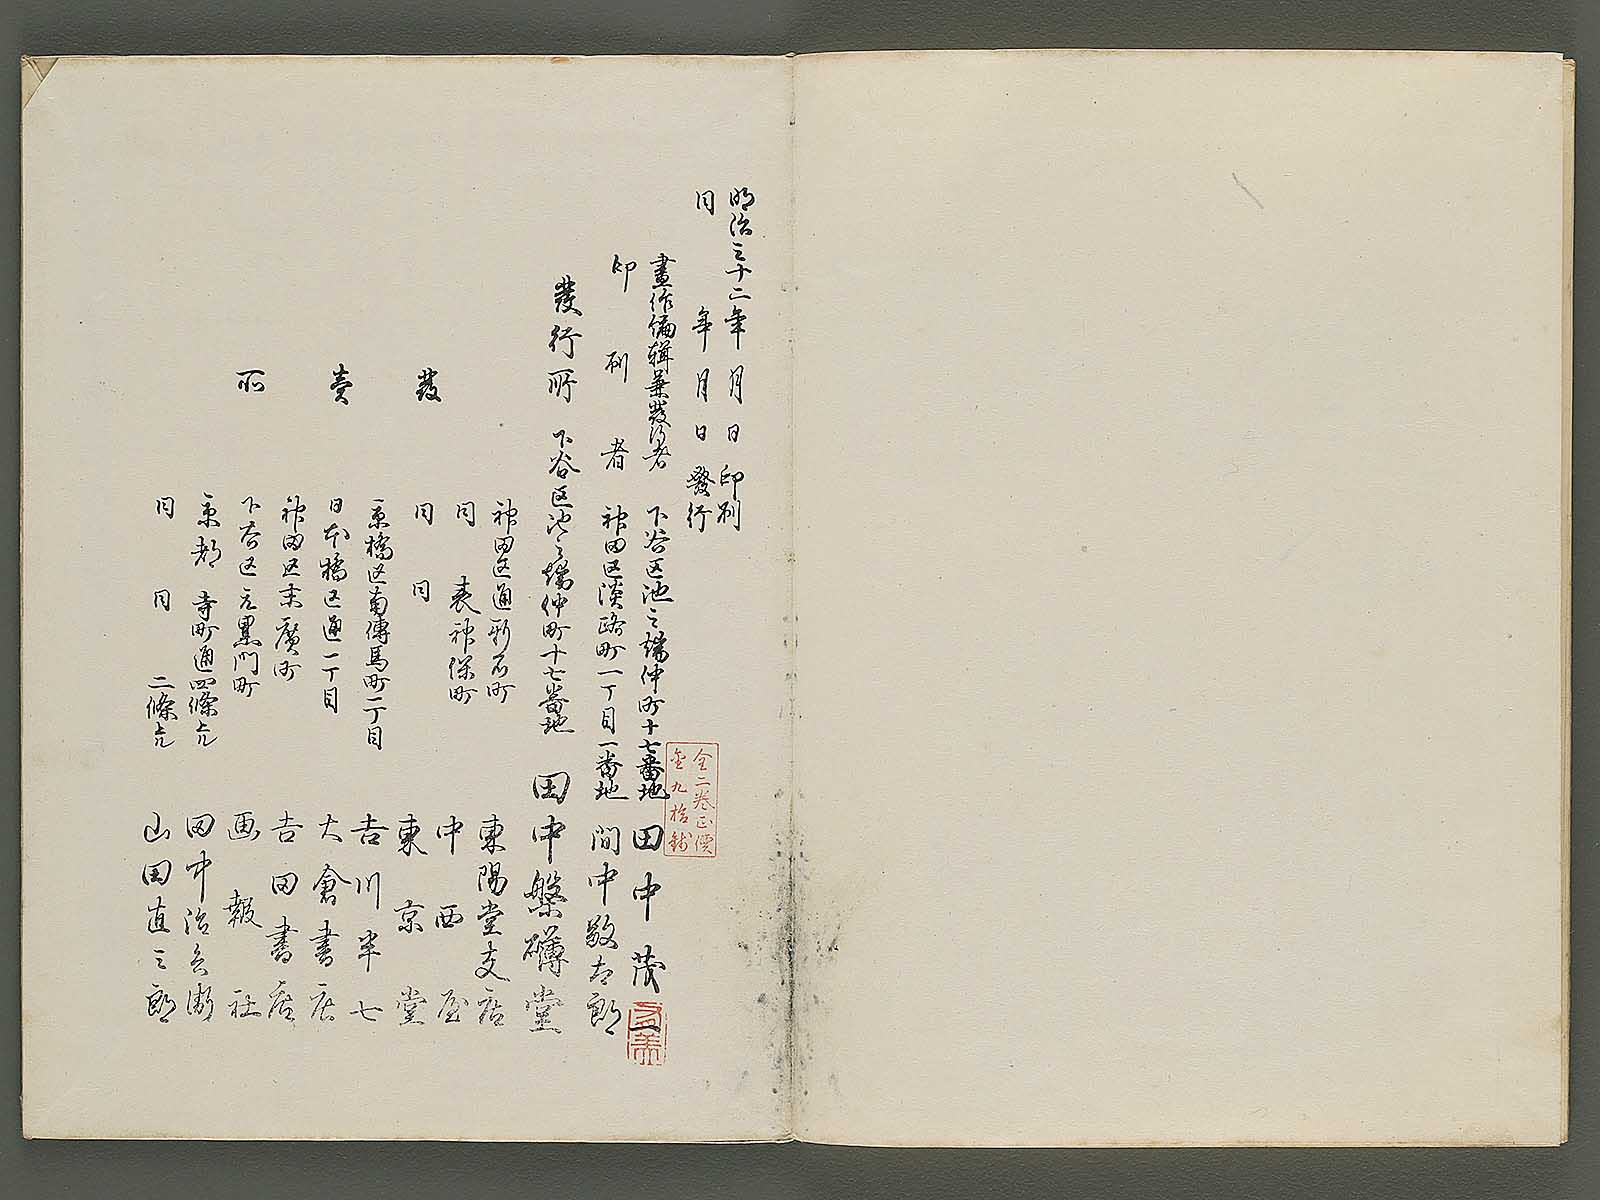 明治三十二年 月 日 印刷
同 年 月 日 發行
畫作編輯兼發行者 下谷区池之端仲町十七番地 田中茂一
印刷者 神田区淡路町一丁目一番地 間中敬太郎
發行所 下谷区池之端仲町十七番地 田中槃礴堂
發賣所
神田区通新石町 東陽堂支店
同 表神保町 中西屋
同 同 東京堂
京橋区南傳馬町一丁目 吉川半七
日本橋区通一丁目 大倉書店
神田区末廣町 吉田書店
下谷区元黒門町 画報社
京都 寺町通四條 田中治兵衛
同 同 二條 山田直三郎
全二卷正價
金九拾錢